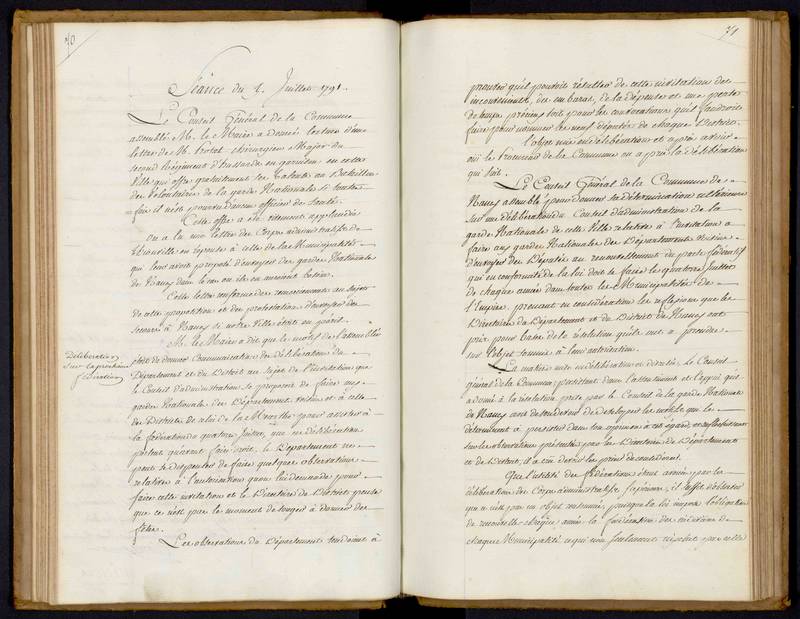 70
Séance du 1. Juillet 1791.
Le Conseil Général de la Commune
assemblé M. le Maire a donné lecture d'une
lettre de M. chirurgien Major du
second Régiment d'hussards en garnison en cette
Ville qui offre gratuitement ses talents au Bataillon
des Volontaires de la garde Nationale si toute-
fois il n'est pourvu d'aucun officier de Santé.
Cette offre a été vivement applaudie
on a lu une lettre des Corps administratifs de
Thionville en réponse à celle de la Municipalité
qui leur avoit proposé d'envoyer des gardes Nationales
de Nancy dans le cas où ils en auroient besoin.
Cette lettre renferme des remerciements au sujet
de cette proposition et des protestations d'envoyer des
secours à Nancy si notre Ville étoit en péril.
M. le Maire a dit que le motif de l'assemblée
Délibération
sur la prochaine
fédération
étoit de donner Communication des délibérations du
Département et du District au sujet de l'invitation que
le Conseil d'administration se proposoit de faire aux
gardes Nationales des Départements voisins et à celle
des Districts de celui de la Meurthe pour assister à
la fédération du quatorze Juillet, que ces délibérations
portent qu'avant faire droit, le Département ne
peut se dispenser de faire quelques observations
relatives à l'autorisation qu'on lui demande pour
faire cette invitation et le Directoire du District pense
que ce n'est pas le moment de songer à donner des
fêtes.
Les observations du Département tendoient à
71
prouver qu'il pouvoit résulter de cette invitation des
inconvénients, des embaras, de la dépense et une perte
de temps précieux soit pour les convocations qu'il faudroit
faire pour nommer les neuf députés de chaque District.
l'objet mis en délibération et après avoir
oui le Procureur de la Commune on a pris la délibération
qui suit.
Le Conseil Général de la Commune de
Nancy assemblé pour donner sa détermination ultérieure
sur une délibération du Conseil d'administration de la
garde Nationale de cette Ville relative à l'invitation à
faire aux gardes Nationales des Départements voisins
d'envoyer des Députés au renouvellement du pacte fédératif
qui en conformité de la loi doit se faire le quatorze Juillet
de chaque année dans toutes les Municipalités de
l'Empire, prenant en considération les réflexions que les
Directoires du Département et du District de Nancy ont
pris pour base de la résolution qu'elle est à prendre
sur l'objet soumis à leur autorisation.
La matière mise en délibération et discutée, le Conseil
général de la Commune, persistant dans l'assentiment et l'appui qu'il
a donné à la résolution prise par le Conseil de la garde Nationale
de Nancy, croit devoir développer les motifs qui le
déterminent à persister dans son opinion à cet égard, et réfléchissant
sur les observations présentées par les Directoires du Département
et du District, il a cru devoir les prendre en considérant.
Que l'utilité des fédérations étant avouée par la
délibération des Corps administratifs supérieurs, il suffit d'observer
que ce n'est pas un objet puisque la loi impose l'obligation
de renouveller chaque année la fédération des citoyens de
chaque Municipalité, ce qui non seulement par cette